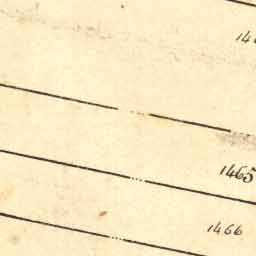 1465
1466